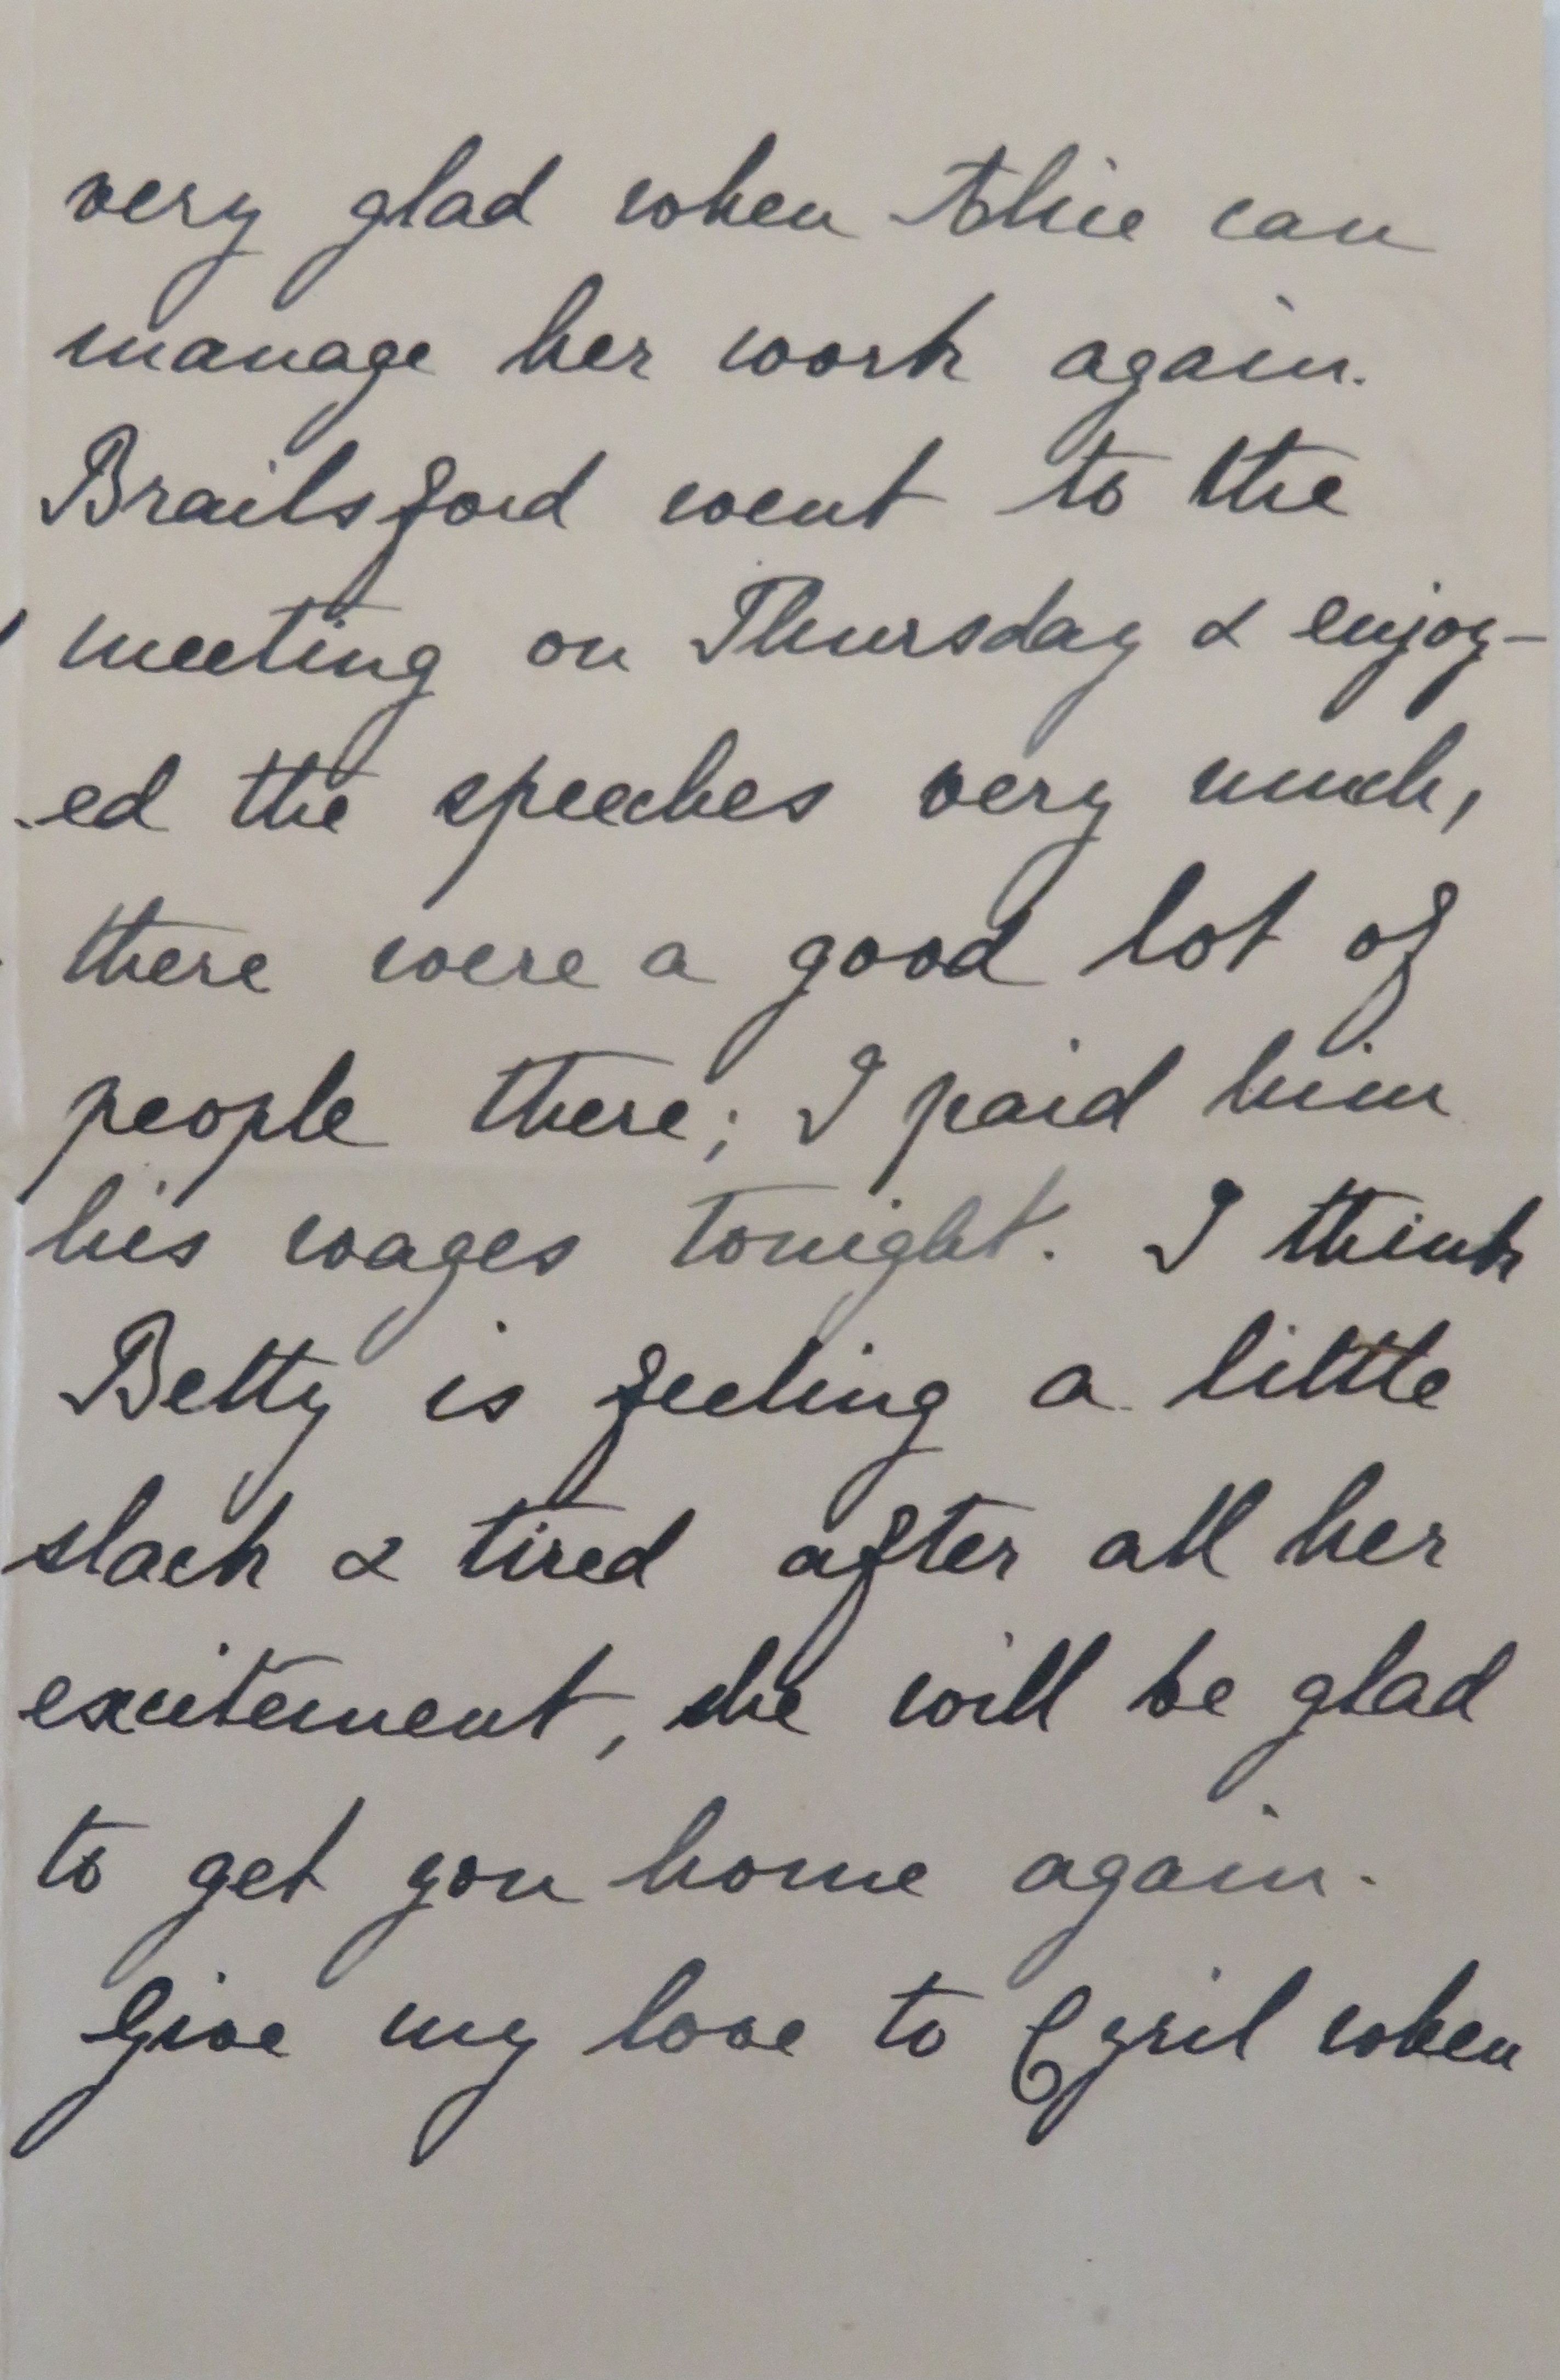 very glad when Alice can
manage her work again.
Brailsford went to the
meeting on Thursday & enjoy-
-ed the speeches very much,
there were a good lot of
people there; I paid him
his wages tonight. I think
Betty is feeling a little
slack & tired after all her
excitement, she will be glad
to get you home again.
Give my love to Cyril when